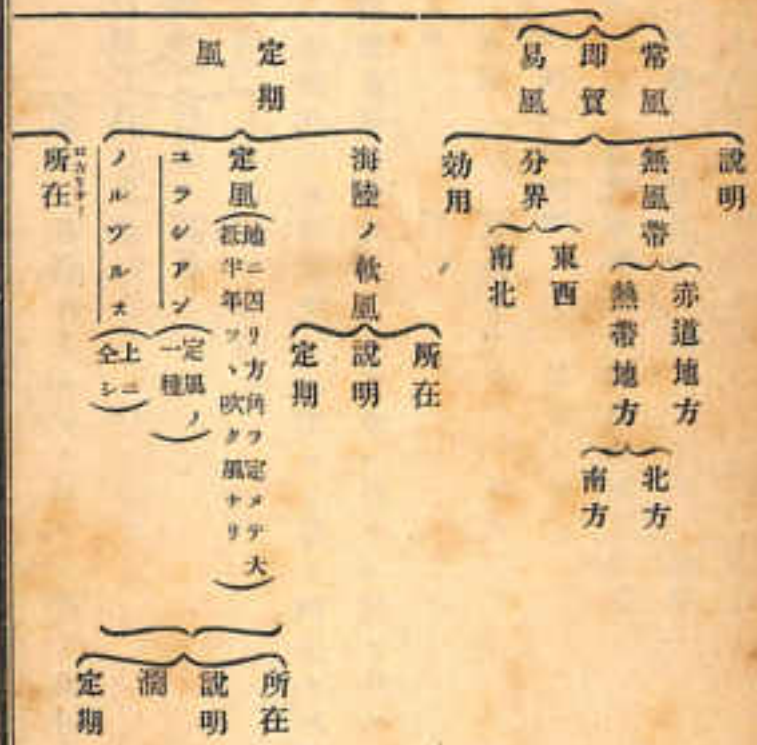 常風
即貿
易風
說明
無風帶
赤道地方
熱帶地方
北方
南方
分界
東西
南北
効用
定期
風
海陸ノ軟風
所在
說明
定期
定風
(地ニ因リ方角ヲ定メテ大
抵半年ツヽ吹ク風ナリ)
ユラシアン
(定風ノ
一種)
ノルヅルス
(上ニ
仝シ)
所在
說明
定期
所在